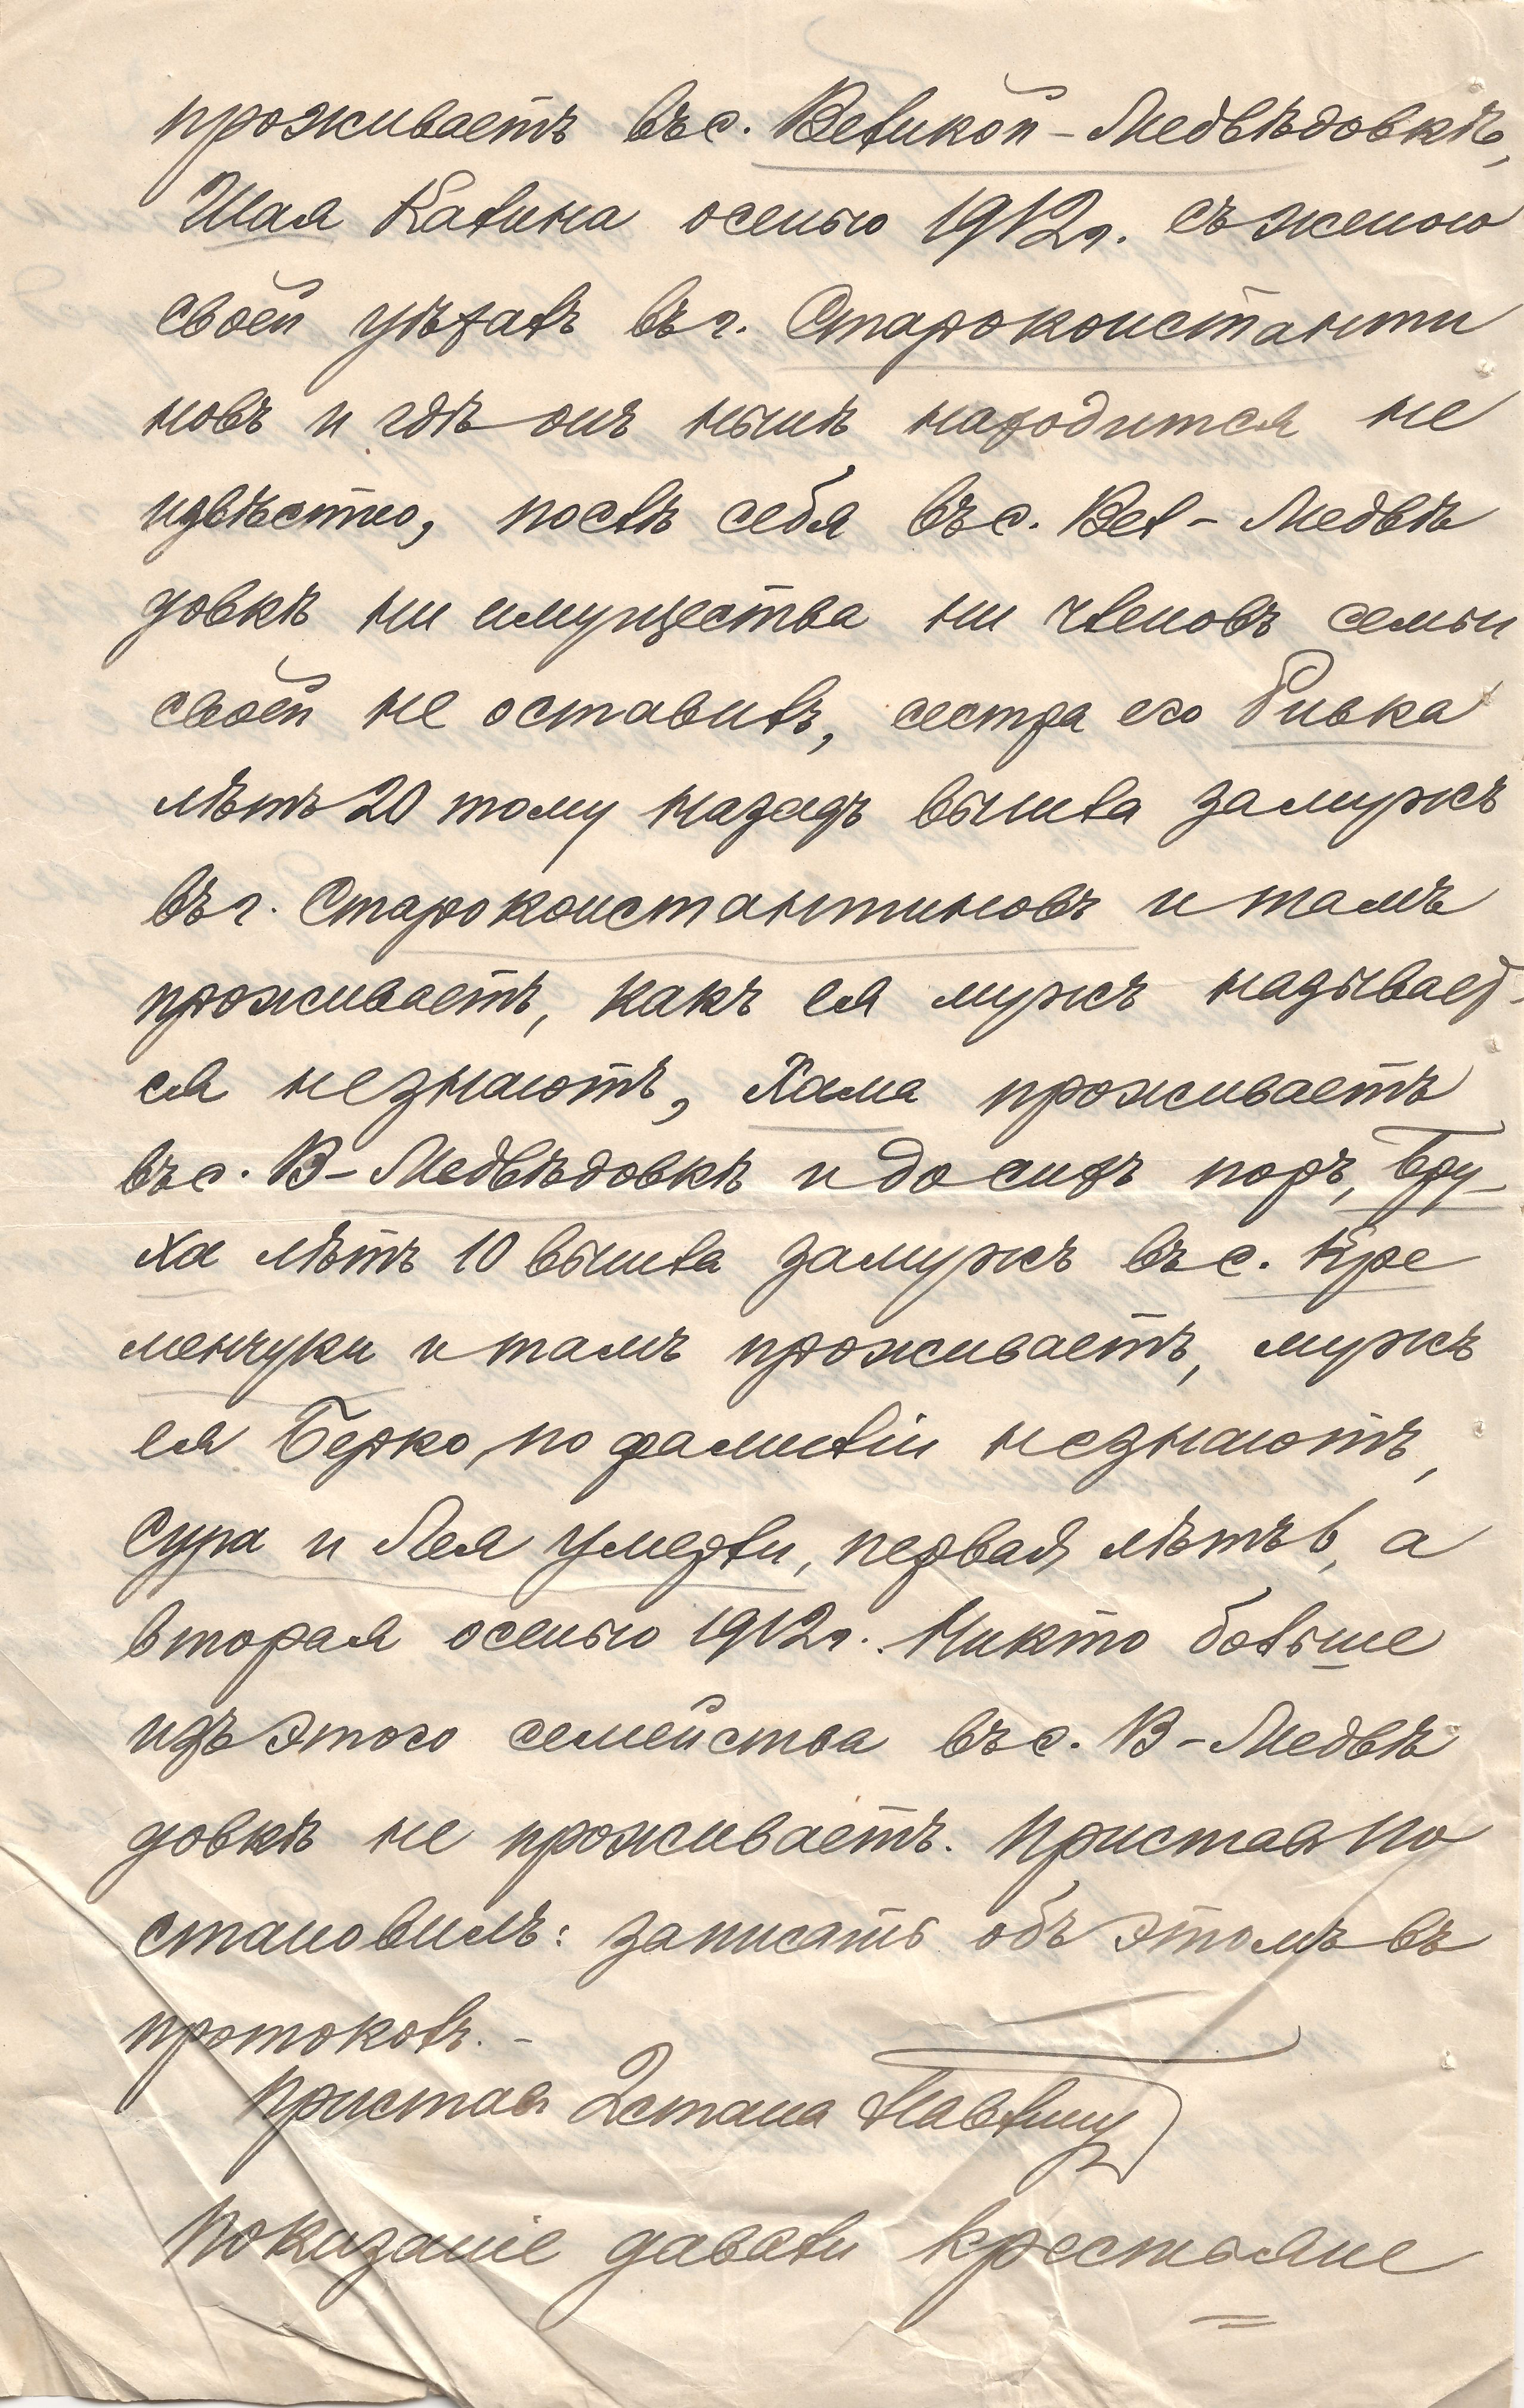 проживаетъ въ с. Великой-Медвѣдовкѣ,
Шая Калина осенью 1912 г. съ женою
своей уѣхалъ въ г. Староконстанти
новъ и гдѣ онъ нынѣ находится не
извѣстно, послѣ себя въ с. Вел-Медвѣ
довкѣ ни имущества ни членовъ семьи
своей не оставилъ, сестра его Ривка
лѣтъ 20 тому назадъ вышла замужъ
въ г. Староконстантиновъ и тамъ
проживаетъ, какъ ея мужъ называет-
ся незнаютъ, Хама проживаетъ
въ с. В-Медвѣдовкѣ и до сихъ поръ, Бру-
ха лѣтъ 10 вышла замужъ въ с. Кре
менчуки и тамъ проживаетъ, мужъ
ея Берко, по фамиліи незнаютъ,
Сура и Лея умерли, первая лѣтъ 6, а
вторая осенью 1912 г. Никто больше
изъ этого семейства въ с. В-Медвѣ
довкѣ не проживаетъ. Приставъ по
становилъ: записать объ этомъ въ
протоколъ. -
Приставъ 2 стана
Показаніе давали крестьяне